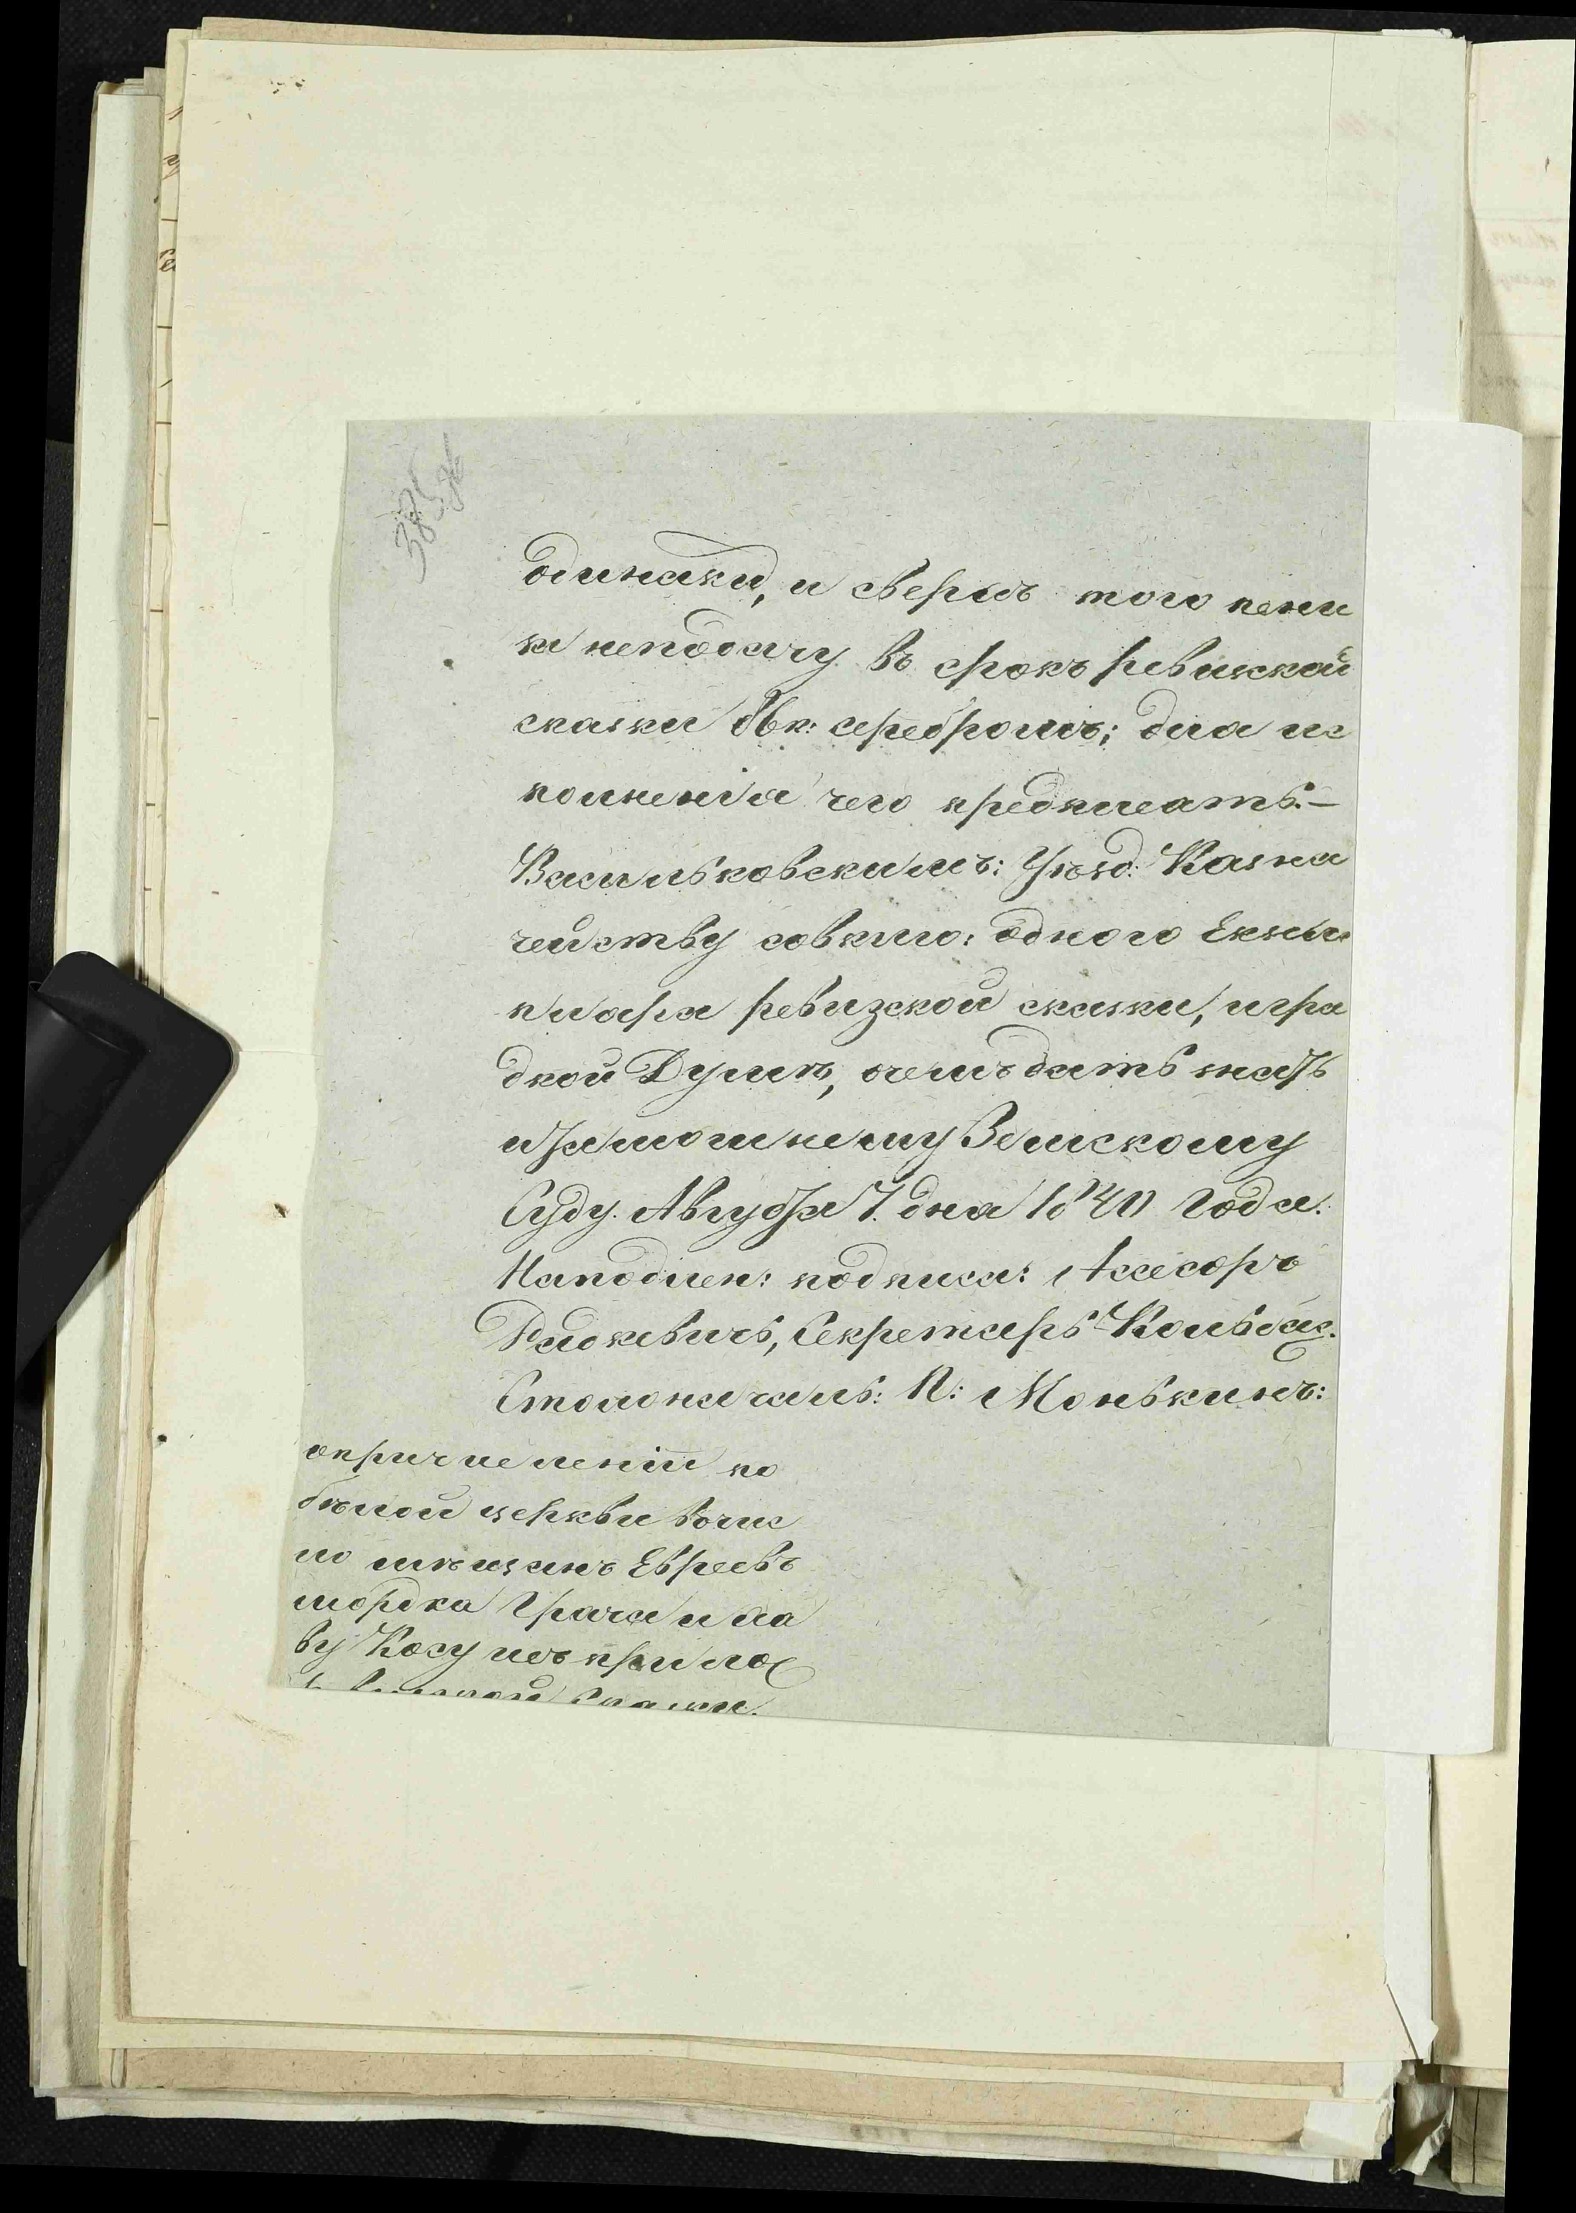 385
одинакид, и сверхъ того пени
за неподачу въ срокъ ревизкой
сказки 86к: серебромъ; для ис
полненія чего предписать.—
Васильковскимъ: Уѣзд: Казна
чейству совключ: одного Екзем
пляра ревизской сказки, игра
дкой Думѣ, очемъ дать знать
итамошнему Земскому
Суду. Августа 7. дня 1840 года.
Наподлен: подписа: Асесоръ
Радкевичь, Секретарь Кольбас.
Столоначаль: П: Монькинъ:
опричисленіи по
бѣлой церкви вочис
ло мѣщанъ Евреевъ
мордка Грача и Ла
ву Косу съ прилож
сказки.